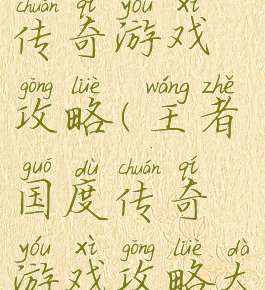 chuán qí yóu xì
传奇游戏
gōng lüè wáng zhě
攻略(王者
guó dù chuán qí
国度传奇
yóu xì gōng lüè dà
游戏攻略大